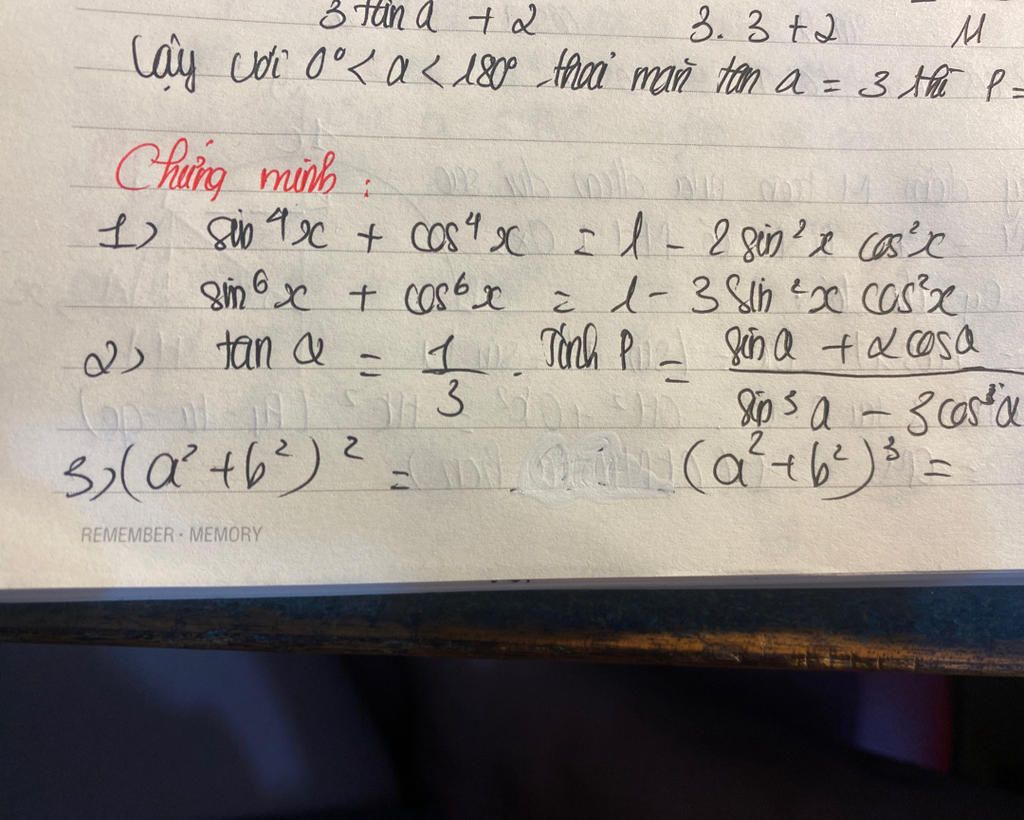 3 tan a + 2 3. 3 + 2 11
Vậy với 0° < a < 180° thoả mãn tan a = 3 thì P =
Chứng minh :
1) sin⁴x + cos⁴x = 1 - 2 sin²x cos²x
sin⁶x + cos⁶x = 1 - 3 sin²x cos²x
2) tan a = 1/3 . Tính P = (sin a + 2cos a)/(sin³a - 3cos³a)
3) (a² + b²)² = (a² + b²)³ =
REMEMBER · MEMORY